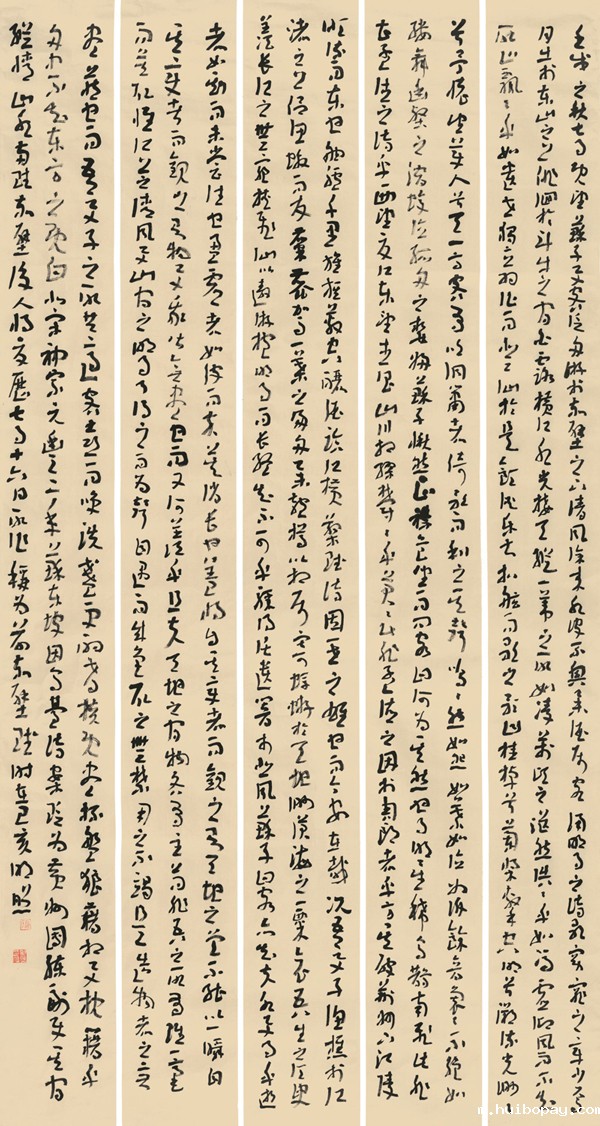 壬戌之秋七月既望蘇子與客泛舟游於赤壁之下清風徐來水波不興舉酒屬客誦明月之詩歌窈窕之章少焉
月出於東山之上徘徊於斗牛之間白露橫江水光接天縱一葦之所如凌萬頃之茫然浩浩乎如馮虛御風而不知
所止飄飄乎如遺世獨立羽化而登仙於是飲酒樂甚扣舷而歌之歌曰桂棹兮蘭槳擊空明兮溯流光渺渺
兮予懷望美人兮天一方客有吹洞簫者倚歌而和之其聲嗚嗚然如怨如慕如泣如訴餘音裊裊不絕如
縷舞幽壑之潛蛟泣孤舟之嫠婦蘇子愀然正襟危坐而問客曰何為其然也月明星稀烏鵲南飛此非
孟德之詩乎西望夏口東望武昌山川相繆鬱鬱乎蒼蒼此非孟德之困於周郎者乎方其破荊州下江陵
順流而東也舳艫千里旌旗蔽空釃酒臨江橫槊賦詩固一世之雄也而今安在哉況吾與子漁樵於江
渚之上侶魚蝦而友麋鹿駕一葉之扁舟舉匏樽以相屬寄蜉蝣於天地渺滄海之一粟哀吾生之須臾
羨長江之無窮挾飛仙以遨遊抱明月而長終知不可乎驟得託遺響於悲風蘇子曰客亦知夫水與月乎逝
者如斯而未嘗往也盈虛者如彼而卒莫消長也蓋將自其變者而觀之則天地之曾不能以一瞬自
其不變者而觀之則物與我皆無盡也而又何羨乎且夫天地之間物各有主苟非吾之所有雖一毫
而莫取惟江上之清風與山間之明月耳得之而為聲目遇而成色取之無禁用之不竭是造物者之無
盡藏也而吾與子之所共適客喜而笑洗盞更酌肴核既盡杯盤狼藉相與枕藉乎
舟中不知東方之既白北宋神宗元豐二年蘇東坡因烏臺詩案貶為黃州團練副使其間
縱情山水兩賦赤壁後人將夏曆七月十六日所作稱為前赤壁賦時在己亥明照
m.huibopay.com